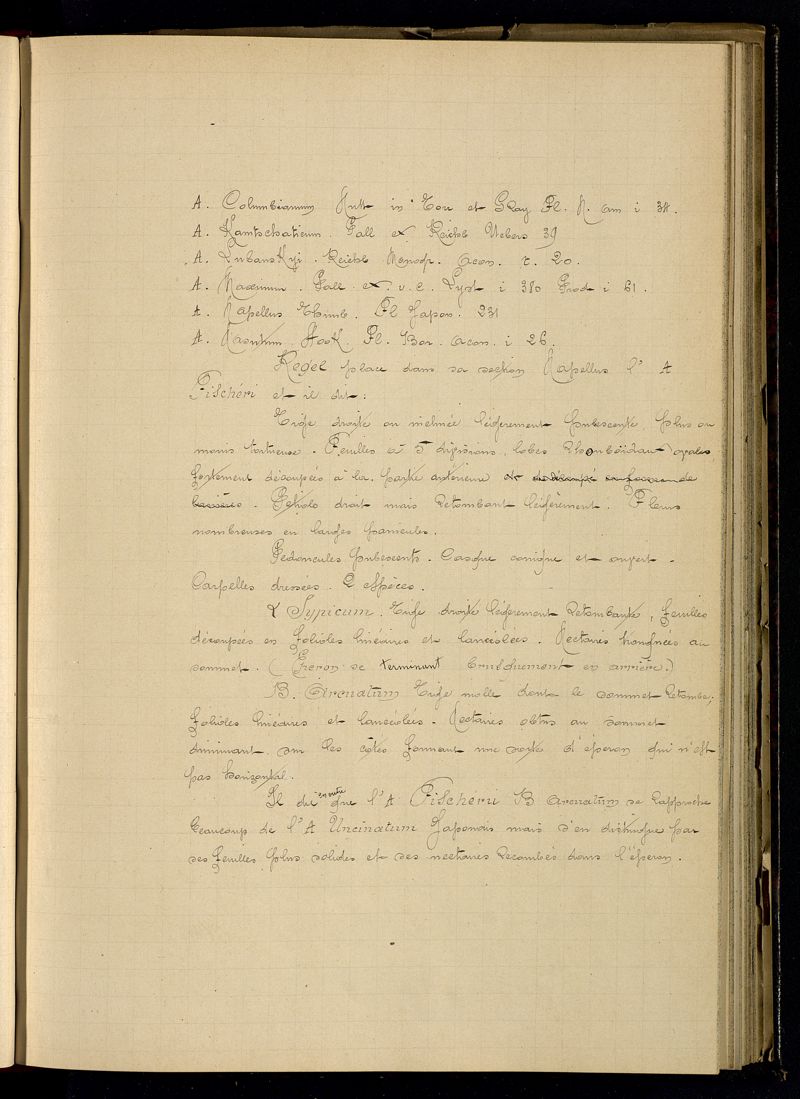 A. Columbianum Nutt in Torr et Gray Fl. N. am i 34.
A. Kamtschaticum. Pall ex Reichb Uebers 39
A. LubansKyi. Reichb Monogr. acon. t. 20.
A. Maximum. Pall. ex. v. e. Lyst i 380 Prod i 61.
A. Napellus Thumb. Fl Japon. 231
A. Nasutum. Hook. Fl. Bor. acon. i 26.
Regel place dans sa section Napellus l' A
Fischéri et il dit:
Tige droite ou inclinée légèrement pubescente, plus ou
moins tortueuse. Feuilles à 5 divisions, lobes Rhomboïdaux ovales
fortement découpées à la partie antérieure et
Petiole droit mais Retombant légèrement. Fleurs
nombreuses en larges panicules.
Pedoncules pubescents. Casque conique et ouvert.
Carpelles dressées. 2 espèces.
α Typicum. Tige droite légèrement Retombante, feuilles
découpées en folioles linéaires et lancéolées. Nectaires tronquées au
sommet. (Eperon se terminant brusquement en arrière.)
B. Arcuatum Tige molle dont le sommet Retombe;
folioles linéaires et lancéolées. Nectaires obtus au sommet
diminuant sur les côtés formant une sorte d'éperon qui n'est
pas horizontal.
Il dit ensuite que l'A Fischérii B arcuatum se Rapproche
beaucoup de l'A Uncinatum Japonais mais s'en distingue par
ses feuilles plus solides et ses nectaires Recombés dans l'éperon.